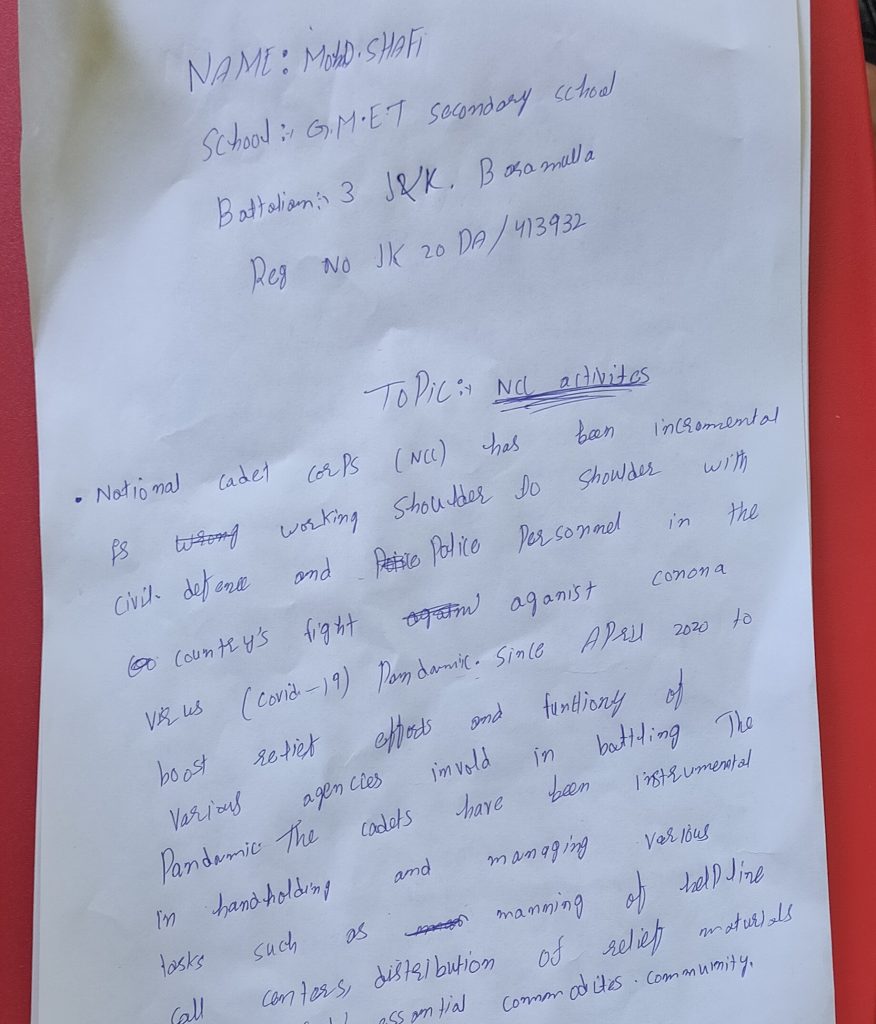 NAME: MOHD. SHAFi
School :- G.M.E.T secondary school
Battalion :- 3 J&K. Baramulla
Reg No JK 20 DA/413932
TOPiC :- NCC activites
• National cadet corPs (NCC) has been incromental
Ps working shoulder to shoulder with
civil. defence and Police Personnel in the
country's fight aganist conona
virus (covid-19) Pandamic. since APRil 2020 to
boost relief effods and funtiony of
various agencies invold in battling The
Pandamic The cadets have been instrumental
in handholding and managing various
tasks such as manning of helPline
call centors, distribution of relief maturials
essantial commodites. commumity.